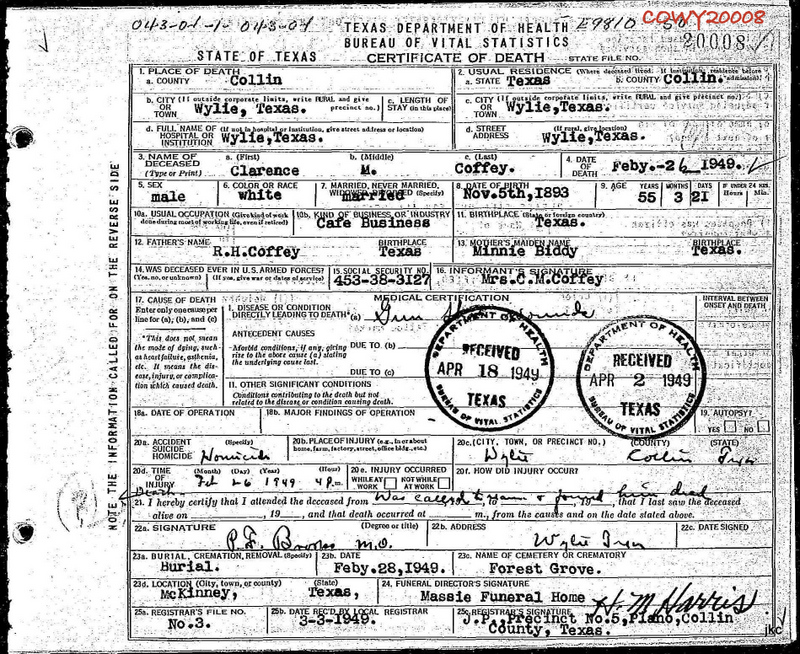 043-01-1- 043-01
TEXAS DEPARTMENT OF HEALTH
E9810
COWY20008
BUREAU OF VITAL STATISTICS
20008
STATE OF TEXAS
CERTIFICATE OF DEATH
STATE FILE NO.
1. PLACE OF DEATH
a. COUNTY Collin
2. USUAL RESIDENCE (Where deceased lived. If institution, residence before admission).
a. STATE Texas b. COUNTY Collin.
b. CITY (If outside corporate limits, write RURAL and give precinct no.)
OR
TOWN Wylie, Texas.
c. LENGTH OF
STAY (in this place)
c. CITY (If outside corporate limits, write RURAL and give precinct no.)
OR
TOWN Wylie,Texas.
d. FULL NAME OF (If not in hospital or institution, give street address or location)
HOSPITAL OR
INSTITUTION Wylie,Texas.
d. STREET
ADDRESS (If rural, give location)
Wylie,Texas.
3. NAME OF
DECEASED
(Type or Print)
a. (First) b. (Middle) c. (Last)
Clarence M. Coffey.
4. DATE
OF
DEATH Feby.-26 1949.
5. SEX
male
6. COLOR OR RACE
white
7. MARRIED, NEVER MARRIED,
WIDOWED, DIVORCED (Specify)
married
8. DATE OF BIRTH
Nov.5th,1893
9. AGE YEARS MONTHS DAYS IF UNDER 24 HRS.
Hours Min.
55 3 21
10a. USUAL OCCUPATION (Give kind of work
done during most of working life, even if retired)
10b. KIND OF BUSINESS OR INDUSTRY
Cafe Business
11. BIRTHPLACE (State or foreign country)
Texas.
12. FATHER'S NAME BIRTHPLACE
R.H.Coffey Texas
13. MOTHER'S MAIDEN NAME BIRTHPLACE
Minnie Biddy Texas.
14. WAS DECEASED EVER IN U.S. ARMED FORCES?
(Yes, no, or unknown) (If yes, give war or dates of service)
15. SOCIAL SECURITY NO.
453-38-3127
16. INFORMANT'S SIGNATURE
Mrs.C.M.Coffey
17. CAUSE OF DEATH
Enter only one cause per
line for (a), (b), and (c)
*This does not mean
the mode of dying, such
as heart failure, asthenia,
etc. It means the dis-
ease, injury, or complica-
tion which caused death.
MEDICAL CERTIFICATION
INTERVAL BETWEEN
ONSET AND DEATH
I. DISEASE OR CONDITION
DIRECTLY LEADING TO DEATH* (a) Gun Shot
ANTECEDENT CAUSES
Morbid conditions, if any, giving
rise to the above cause (a) stating
the underlying cause last.
DUE TO (b)
DUE TO (c)
II. OTHER SIGNIFICANT CONDITIONS
Conditions contributing to the death but not
related to the disease or condition causing death.
DEPARTMENT OF HEALTH
RECEIVED
APR 18 1949
TEXAS
BUREAU OF VITAL STATISTICS
DEPARTMENT OF HEALTH
RECEIVED
APR 2 1949
TEXAS
BUREAU OF VITAL STATISTICS
18a. DATE OF OPERATION
18b. MAJOR FINDINGS OF OPERATION
19. AUTOPSY?
YES NO
20a. ACCIDENT (Specify)
SUICIDE
HOMICIDE Homicide
20b. PLACE OF INJURY (e.g., in or about
home, farm, factory, street, office bldg., etc.)
20c. (CITY, TOWN, OR PRECINCT NO.) (COUNTY) (STATE)
Wylie Collin Texas
20d. TIME (Month) (Day) (Year) (Hour)
OF
INJURY Feb 26 1949 4 p.m.
20e. INJURY OCCURRED
WHILE AT WORK NOT WHILE AT WORK
20f. HOW DID INJURY OCCUR?
Death
21. I hereby certify that I attended the deceased from Was called to & found him dead, that I last saw the deceased
alive on , 19 , and that death occurred at m., from the causes and on the date stated above.
22a. SIGNATURE (Degree or title)
P.F. Brooks M.D.
22b. ADDRESS
Wylie Texas
22c. DATE SIGNED
23a. BURIAL, CREMATION, REMOVAL (Specify)
Burial.
23b. DATE
Feby.28,1949.
23c. NAME OF CEMETERY OR CREMATORY
Forest Grove.
23d. LOCATION (City, town, or county) (State)
McKinney, Texas,
24. FUNERAL DIRECTOR'S SIGNATURE
Massie Funeral Home H.M Harris
25a. REGISTRAR'S FILE NO.
No.3.
25b. DATE REC'D BY LOCAL REGISTRAR
3-3-1949.
25c. REGISTRAR'S SIGNATURE
J.P., Precinct No.5,Plano,Collin
County, Texas.
jkc
NOTE THE INFORMATION CALLED FOR ON THE REVERSE SIDE